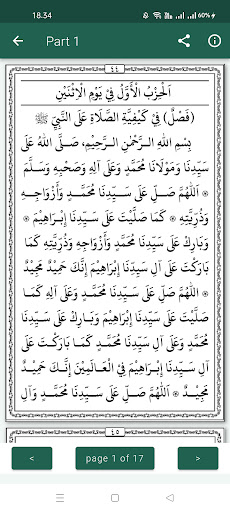 18.34
60%
Part 1
٤٤
اَلْحِزْبُ الْأَوَّلُ فِيْ يَوْمِ الْاِثْنَيْنِ
(فَصْلٌ) فِيْ كَيْفِيَّةِ الصَّلَاةِ عَلَى النَّبِيِّ ﷺ
بِسْمِ اللهِ الرَّحْمٰنِ الرَّحِيْمِ، صَلَّى اللهُ عَلَى
سَيِّدِنَا وَمَوْلَانَا مُحَمَّدٍ وَعَلَى آلِهِ وَصَحْبِهِ وَسَلَّمَ
* اَللّٰهُمَّ صَلِّ عَلَى سَيِّدِنَا مُحَمَّدٍ وَأَزْوَاجِهِ
وَذُرِّيَّتِهِ * كَمَا صَلَّيْتَ عَلَى سَيِّدِنَا إِبْرَاهِيْمَ *
وَبَارِكْ عَلَى سَيِّدِنَا مُحَمَّدٍ وَأَزْوَاجِهِ وَذُرِّيَّتِهِ كَمَا
بَارَكْتَ عَلَى آلِ سَيِّدِنَا إِبْرَاهِيْمَ إِنَّكَ حَمِيْدٌ مَجِيْدٌ
* اَللّٰهُمَّ صَلِّ عَلَى سَيِّدِنَا مُحَمَّدٍ وَعَلَى آلِهِ كَمَا
صَلَّيْتَ عَلَى سَيِّدِنَا إِبْرَاهِيْمَ وَبَارِكْ عَلَى سَيِّدِنَا
مُحَمَّدٍ وَعَلَى آلِ سَيِّدِنَا مُحَمَّدٍ كَمَا بَارَكْتَ عَلَى
آلِ سَيِّدِنَا إِبْرَاهِيْمَ فِي الْعَالَمِيْنَ إِنَّكَ حَمِيْدٌ
مَجِيْدٌ * اَللّٰهُمَّ صَلِّ عَلَى سَيِّدِنَا مُحَمَّدٍ وَآلِ
٤٥
< page 1 of 17 >